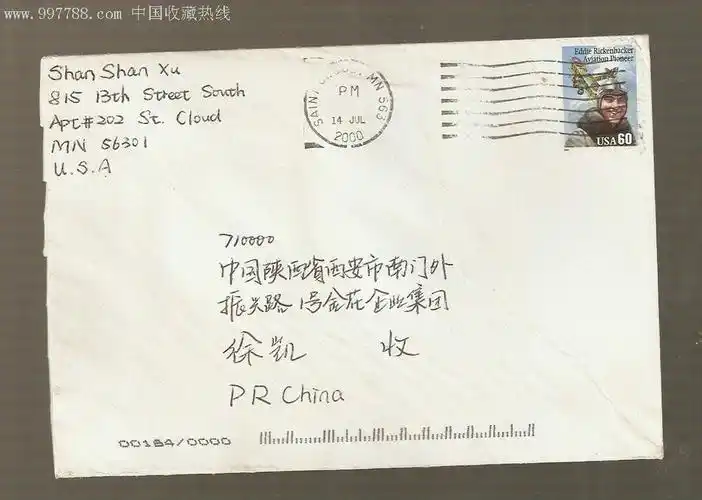 www.997788.com 中国收藏热线
Shan Shan Xu
815 13th Street South
Apt#202 St. Cloud
MN 56301
U.S.A
SAINT CLOUD, MN 563
PM
14 JUL
2000
Eddie Rickenbacker
Aviation Pioneer
USA 60
710000
中国陕西省西安市南门外
振兴路1号金花企业集团
徐凯 收
PR China
00184/0000